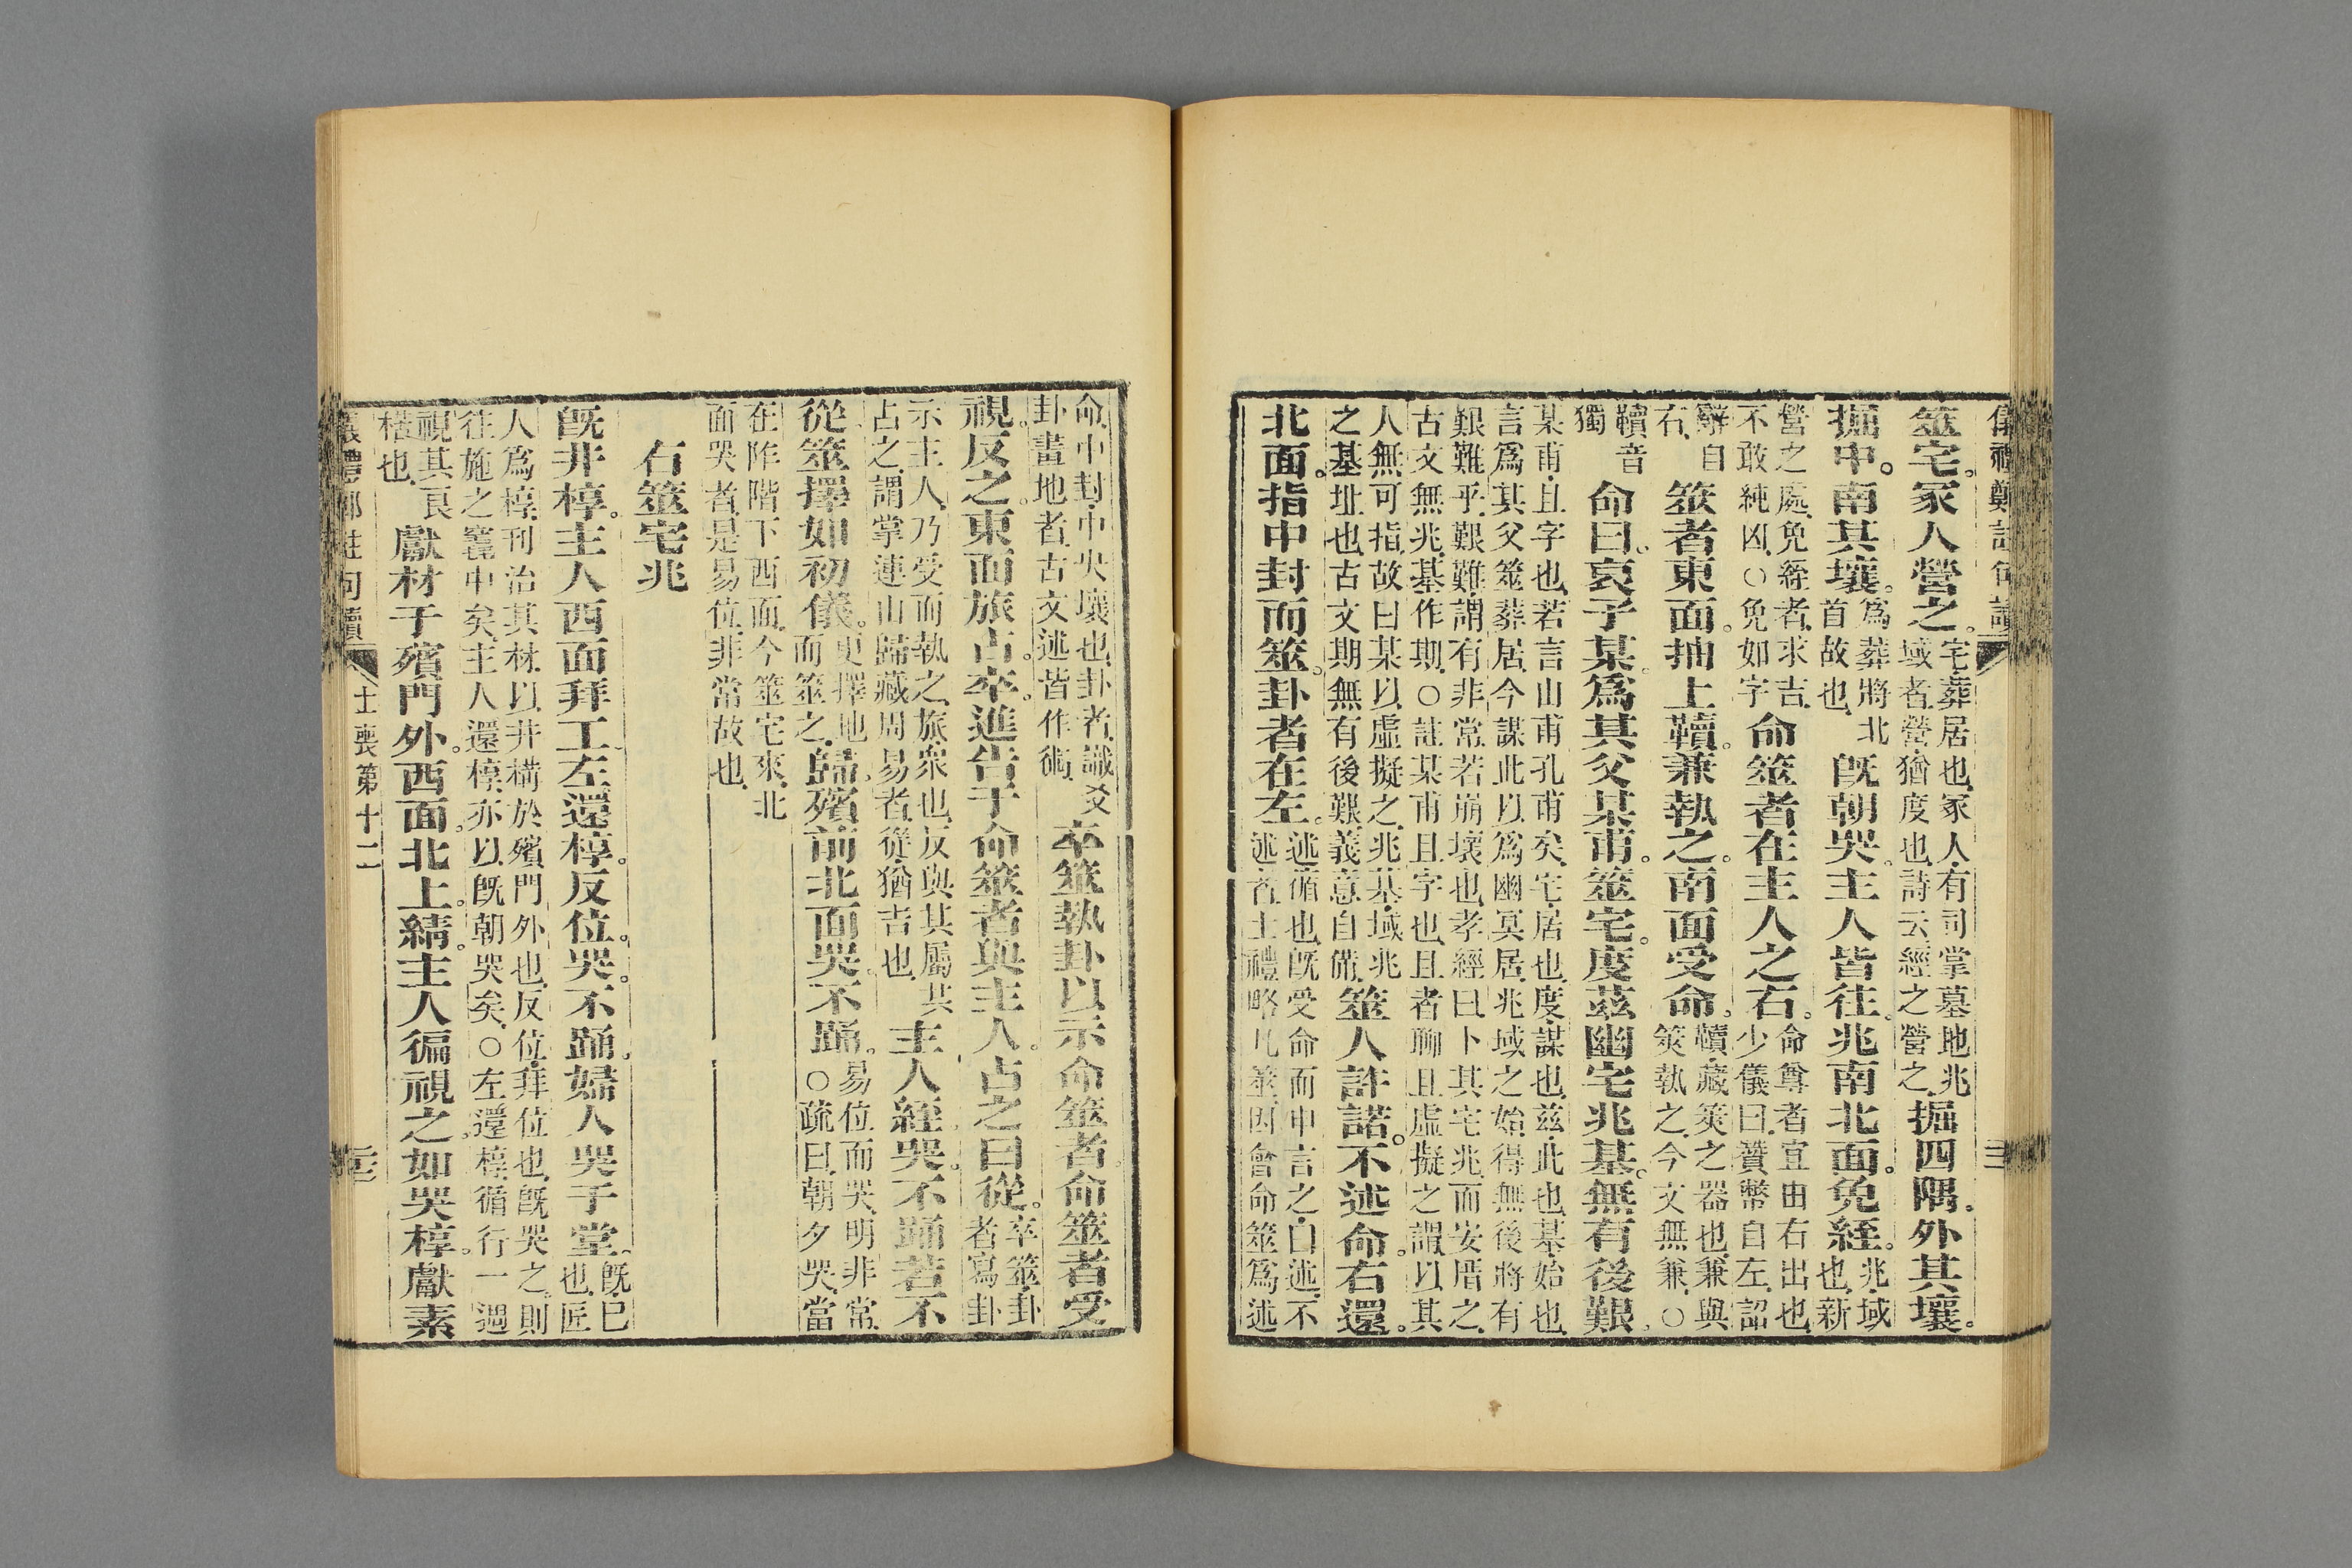 儀禮鄭註句讀
筮宅。冢人營之。宅,葬居也,冢人,有司掌墓地兆域者,營,猶度也,詩云,經之營之,掘四隅。外其壤。
掘中。南其壤。爲葬將北首故也,旣朝哭。主人皆往。兆南北面。免絰。兆,域也,新
營之處,免絰者,求吉,不敢純凶,○免如字命筮者在主人之右。命尊者宜由右出也,少儀曰,贊幣自左,詔
辭自右,筮者東面。抽上韇。兼執之。南面受命。韇,藏筴之器也,兼與筴執之,今文無兼,○
韇音獨命曰。哀子某。爲其父某甫。筮宅。度茲幽宅兆基。無有後艱。
某甫,且字也,若言山甫孔甫矣,宅,居也,度,謀也,茲,此也,基,始也,
言爲其父筮葬居,今謀此以爲幽冥居,兆域之始,得無後將有
艱難乎,艱難,謂有非常,若崩壞也,孝經曰,卜其宅兆而安厝之,
古文無兆,基作期,○註某甫且字也,且者聊且虛擬之謂,以其
人無可指,故曰某以虛擬之,兆基,域兆
之基址也,古文期無有後艱,義意自備,筮人許諾。不述命。右還。
北面。指中封而筮。卦者在左。述,循也,旣受命而申言之,曰述,不述者,士禮略,凡筮,因會命筮爲述
命,中封,中央壤也,卦者,識爻卦畫地者,古文述皆作術,卒筮執卦以示命筮者命筮者受
視。反之。東面旅占。卒。進告于命筮者與主人。占之曰從。卒筮,卦者寫卦
示主人,乃受而執之,旅,衆也,反與其屬共占之,謂掌連山歸藏周易者,從猶吉也,主人絰。哭。不踊若不
從。筮擇如初儀。更擇地而筮之,歸。殯前北面哭。不踊。易位而哭,明非常,○疏曰,朝夕哭,當
在阼階下西面,今筮宅來,北面哭者,是易位,非常故也,
右筮宅兆
旣井椁。主人西面拜工。左還椁。反位。哭。不踊。婦人哭于堂。旣,已也,匠
人爲椁,刊治其材,以井構於殯門外也,反位,拜位也,旣哭之,則
往施之竁中矣,主人還椁,亦以旣朝哭矣,○左還椁,循行一週
視其良楛也,獻材于殯門外。西面。北上。綪。主人徧視之。如哭椁。獻素
儀禮鄭註句讀
士喪第十二